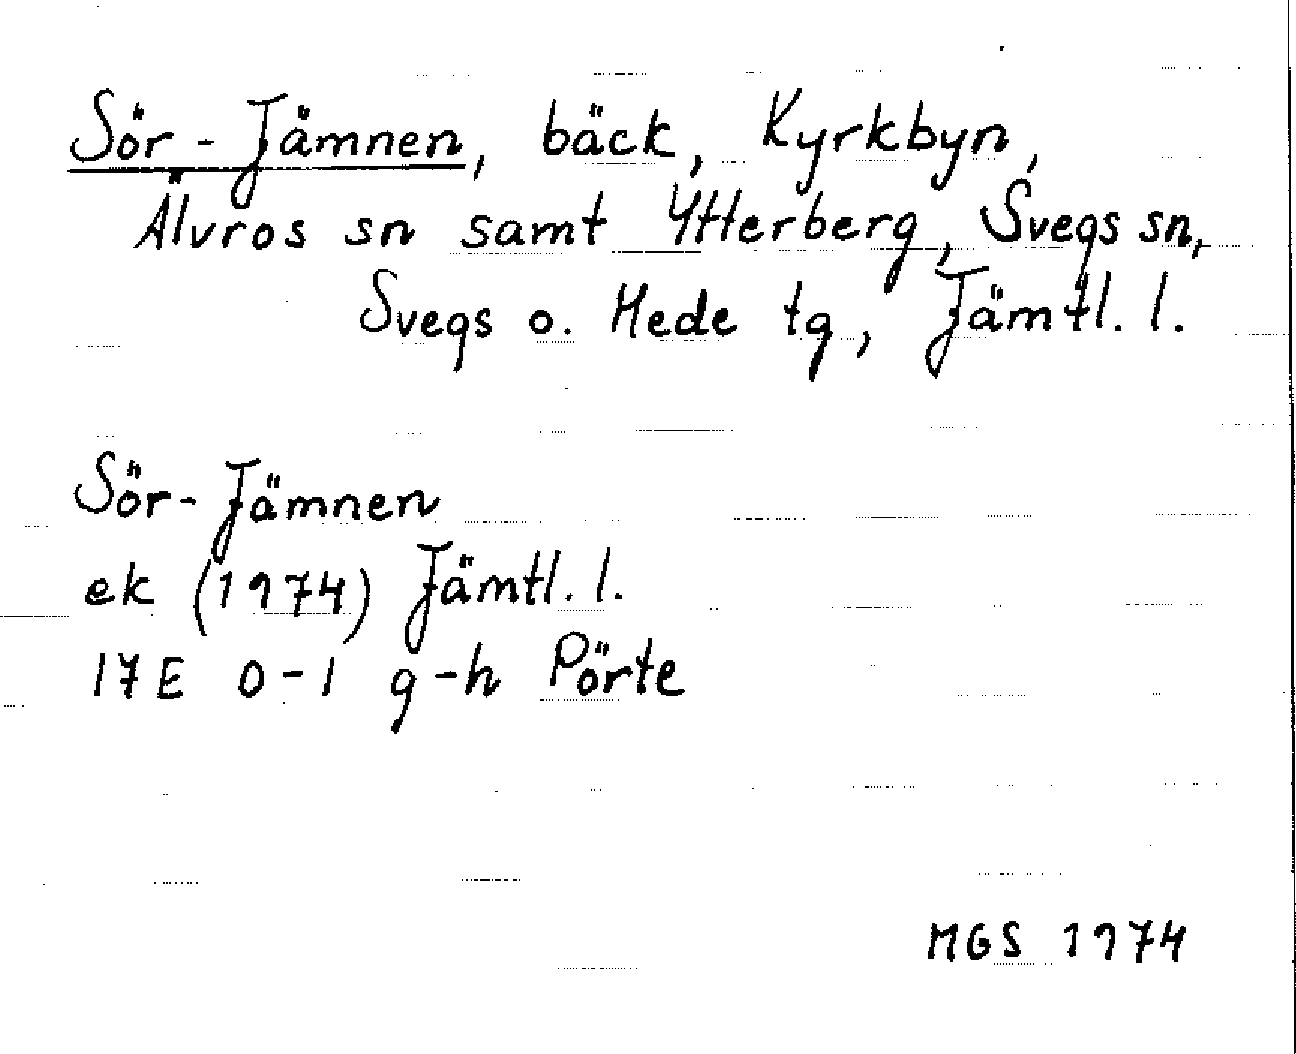 Sör-Jämnen, bäck, Kyrkbyn,
Älvros sn samt Ytterberg, Svegs sn,
Svegs o. Hede tg, Jämtl. l.
Sör-Jämnen
ek (1974) Jämtl. l.
17E 0-1 g-h Pörte
MGS 1974